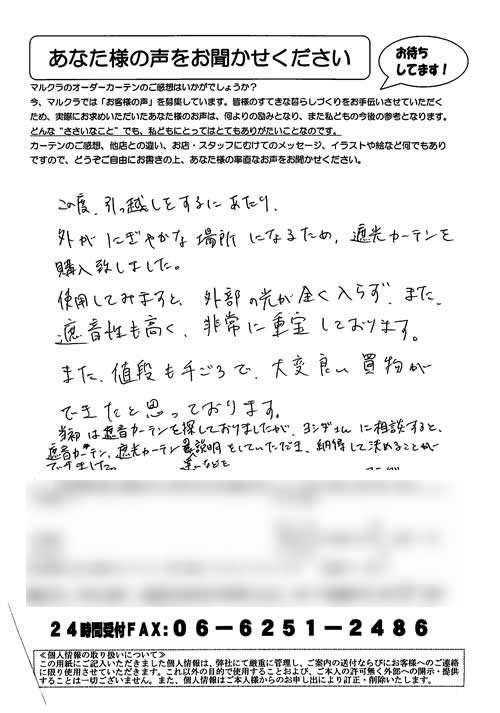 あなた様の声をお聞かせください
お待ち
してます!
マルクラのオーダーカーテンのご感想はいかがでしょうか?
今、マルクラでは「お客様の声」を募集しています。皆様のすてきな暮らしづくりをお手伝いさせていただく
ため、実際にお求めいただいたあなた様のお声は、何よりの励みとなり、また私どもの今後の参考となります。
どんな“ささいなこと”でも、私どもにとってはとてもありがたいことなのです。
カーテンのご感想、他店との違い、お店・スタッフにむけてのメッセージ、イラストや絵など何でもあり
ですので、どうぞご自由にお書きの上、あなた様の率直なお声をお聞かせください。
この度、引っ越しをするにあたり、
外がにぎやかな場所になるため、遮光カーテンを
購入致しました。
使用してみますと、外部の光が全く入らず、また、
遮音性も高く、非常に重宝しております。
また、値段も手ごろで、大変良い買物が
できたと思っております。
当初は遮音カーテンを探しておりましたが、ヨシダさんに相談すると、
遮音カーテン、遮光カーテンの違いなどと説明をしていただき、納得して決めることが
できました
24時間受付FAX:06-6251-2486
≪個人情報の取り扱いについて≫
この用紙にご記入いただきました個人情報は、弊社にて厳重に管理し、ご案内の送付ならびにお客様へのご連絡
に限り使用させていただきます。これ以外の目的で使用することおよび、ご本人の許可無く外部への開示・提供
することは一切ございません。また、個人情報はご本人様からのお申し出により訂正・削除いたします。